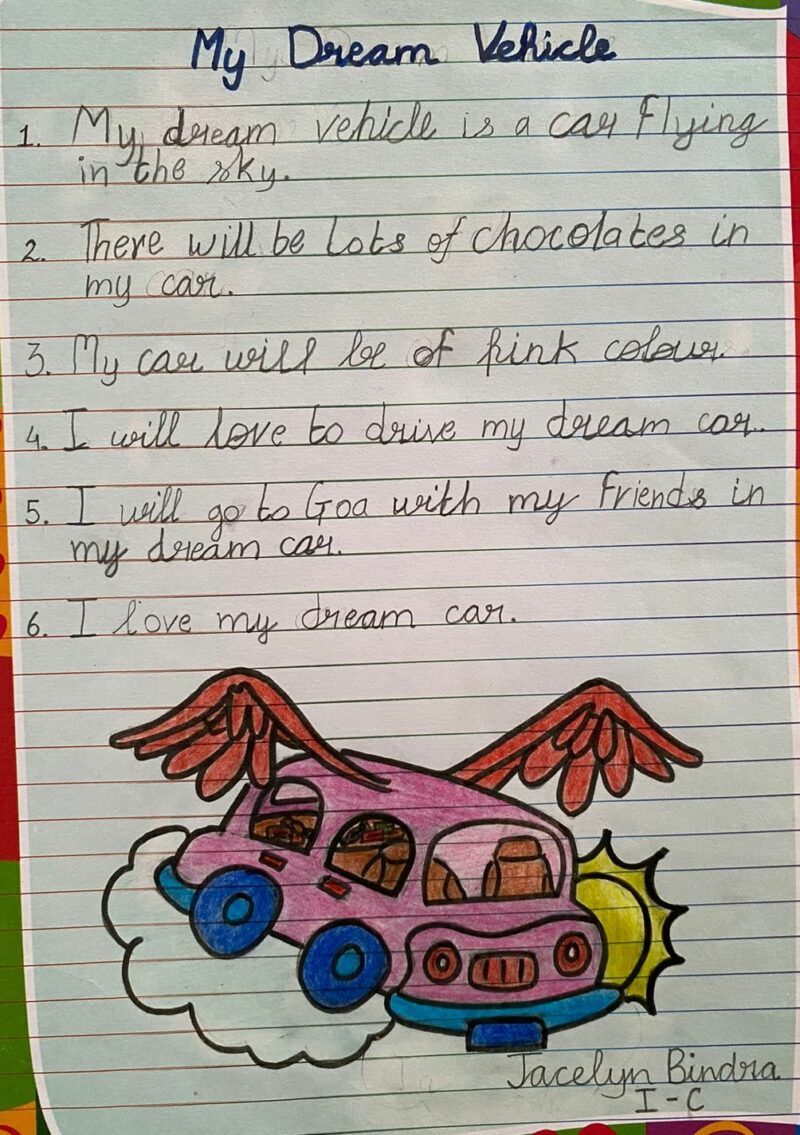 My Dream Vehicle
1. My dream vehicle is a car flying
in the sky.
2. There will be lots of chocolates in
my car.
3. My car will be of pink colour.
4. I will love to drive my dream car.
5. I will go to Goa with my friends in
my dream car.
6. I love my dream car.
Jacelyn Bindra
I - C